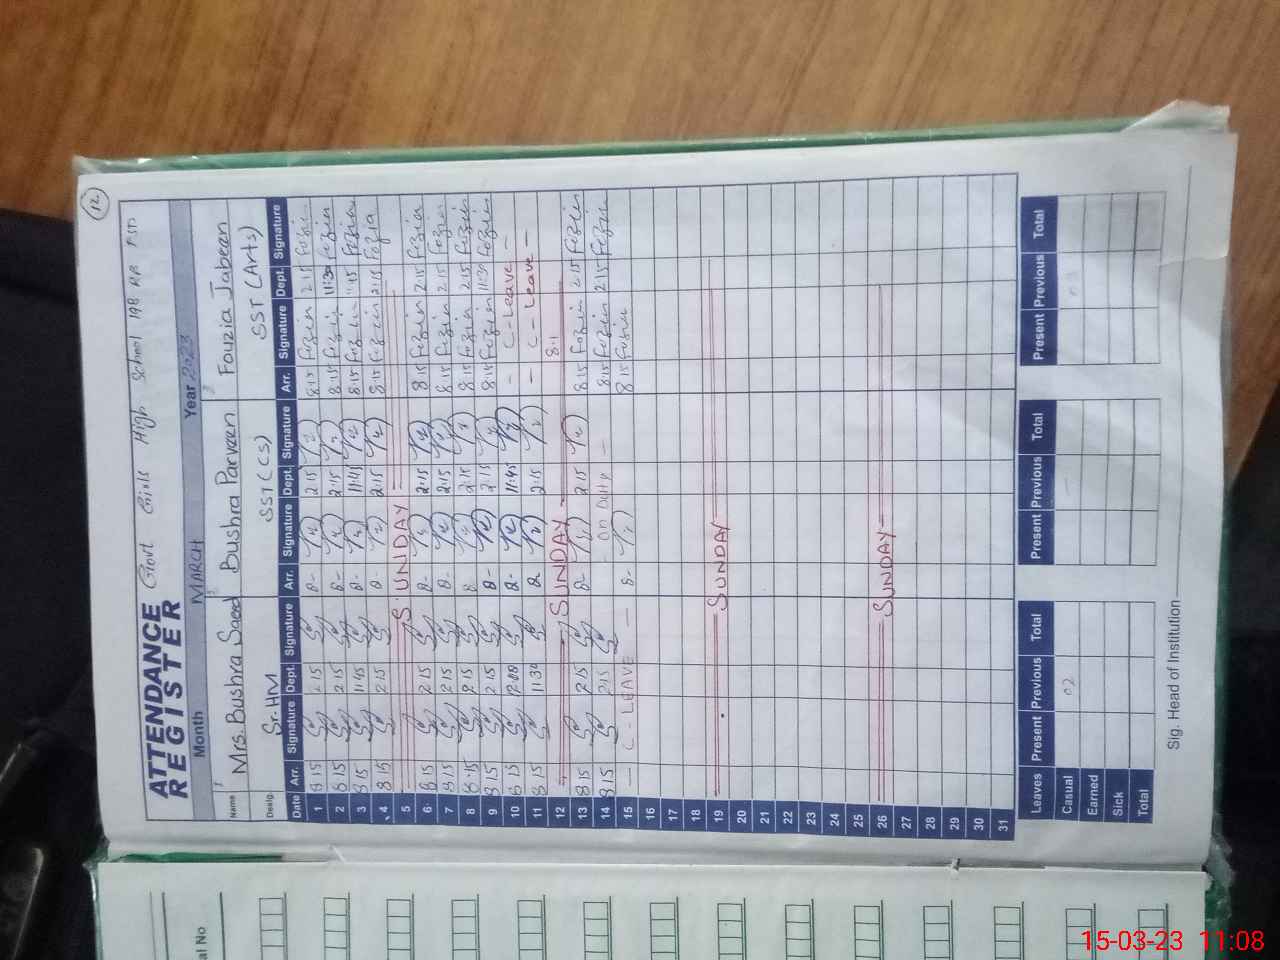 12
ATTENDANCE REGISTER
Govt Girls High School 198 RB FSD
Month MARCH Year 2023
Name Mrs. Bushra Saeed Bushra Parveen Fouzia Jabean
Desig. Sr. HM SST (CS) SST (Arts)
Date Arr. Signature Dept. Signature Arr. Signature Dept. Signature Arr. Signature Dept. Signature
1 8 15 2 15 8- 2:15 8:15 Fozia 2:15 Fozia
2 8 15 2 15 8- 2:15 8:15 Fozia 11:30 Fozia
3 8 15 11:45 8- 11:45 8:15 Fozia Fozia
4 8 15 2 15 8- 2:15 8:15 Fozia 2:15 Fozia
5 SUNDAY
6 8 15 2 15 8- 2:15 8:15 Fozia 2:15 Fozia
7 8 15 2 15 8- 2:15 8:15 Fozia 2:15 Fozia
8 8 15 2 15 8 2:15 8:15 Fozia 2:15 Fozia
9 8 15 2 15 8- 2:15 8:15 Fozia 11:30 Fozia
10 8 15 12:00 8- 11:45 - C-Leave -
11 8 15 11 30 8 2:15 - C-Leave -
12 SUNDAY
13 8 15 2 15 8- 2:15 8:15 Fozia 2:15 Fozia
14 8 15 2 15 On Duty 8:15 Fozia 2:15 Fozia
15 - C-LEAVE - 8- 8:15 Fozia
16
17
18
19 SUNDAY
20
21
22
23
24
25
26 SUNDAY
27
28
29
30
31
Leaves Present Previous Total Present Previous Total Present Previous Total
Casual 02 -
Earned
Sick
Total
Sig. Head of Institution
al No
15-03-23 11:08